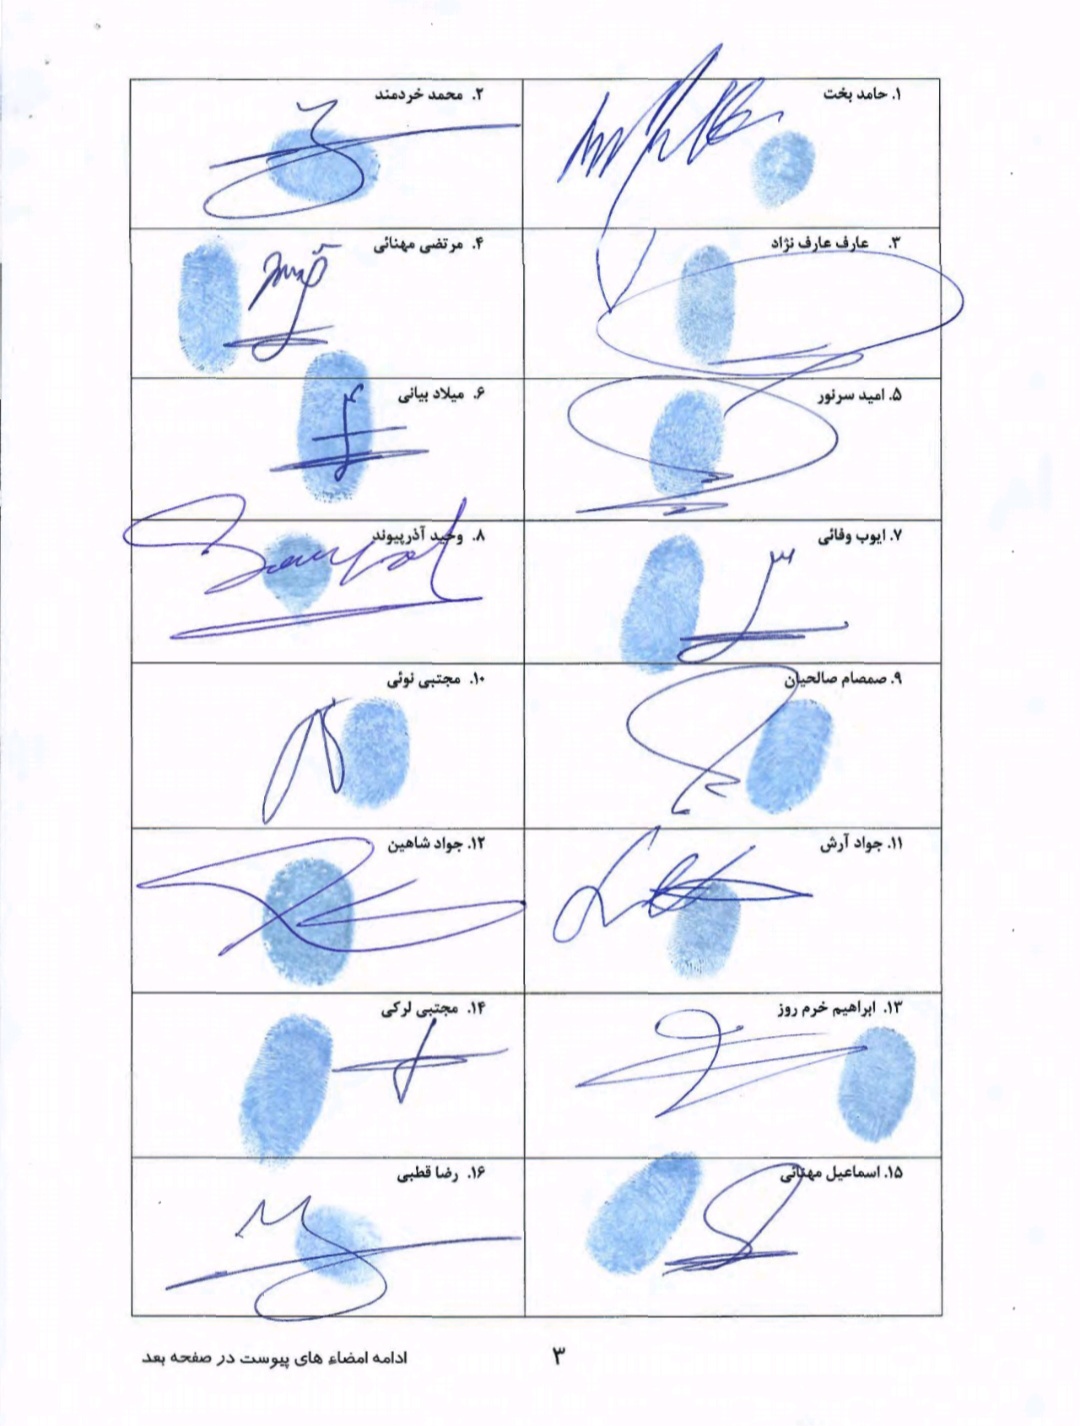 ۱. حامد بخت
۲. محمد خردمند
۳. عارف عارف نژاد
۴. مرتضی مهنائی
۵. امید سرنور
۶. میلاد بیاتی
۷. ایوب وفائی
۸. وحید آذرپیوند
۹. صمصام صالحیان
۱۰. مجتبی نوئی
۱۱. جواد آرش
۱۲. جواد شاهین
۱۳. ابراهیم خرم روز
۱۴. مجتبی لرکی
۱۵. اسماعیل مهنائی
۱۶. رضا قطبی
۳
ادامه امضاء های پیوست در صفحه بعد